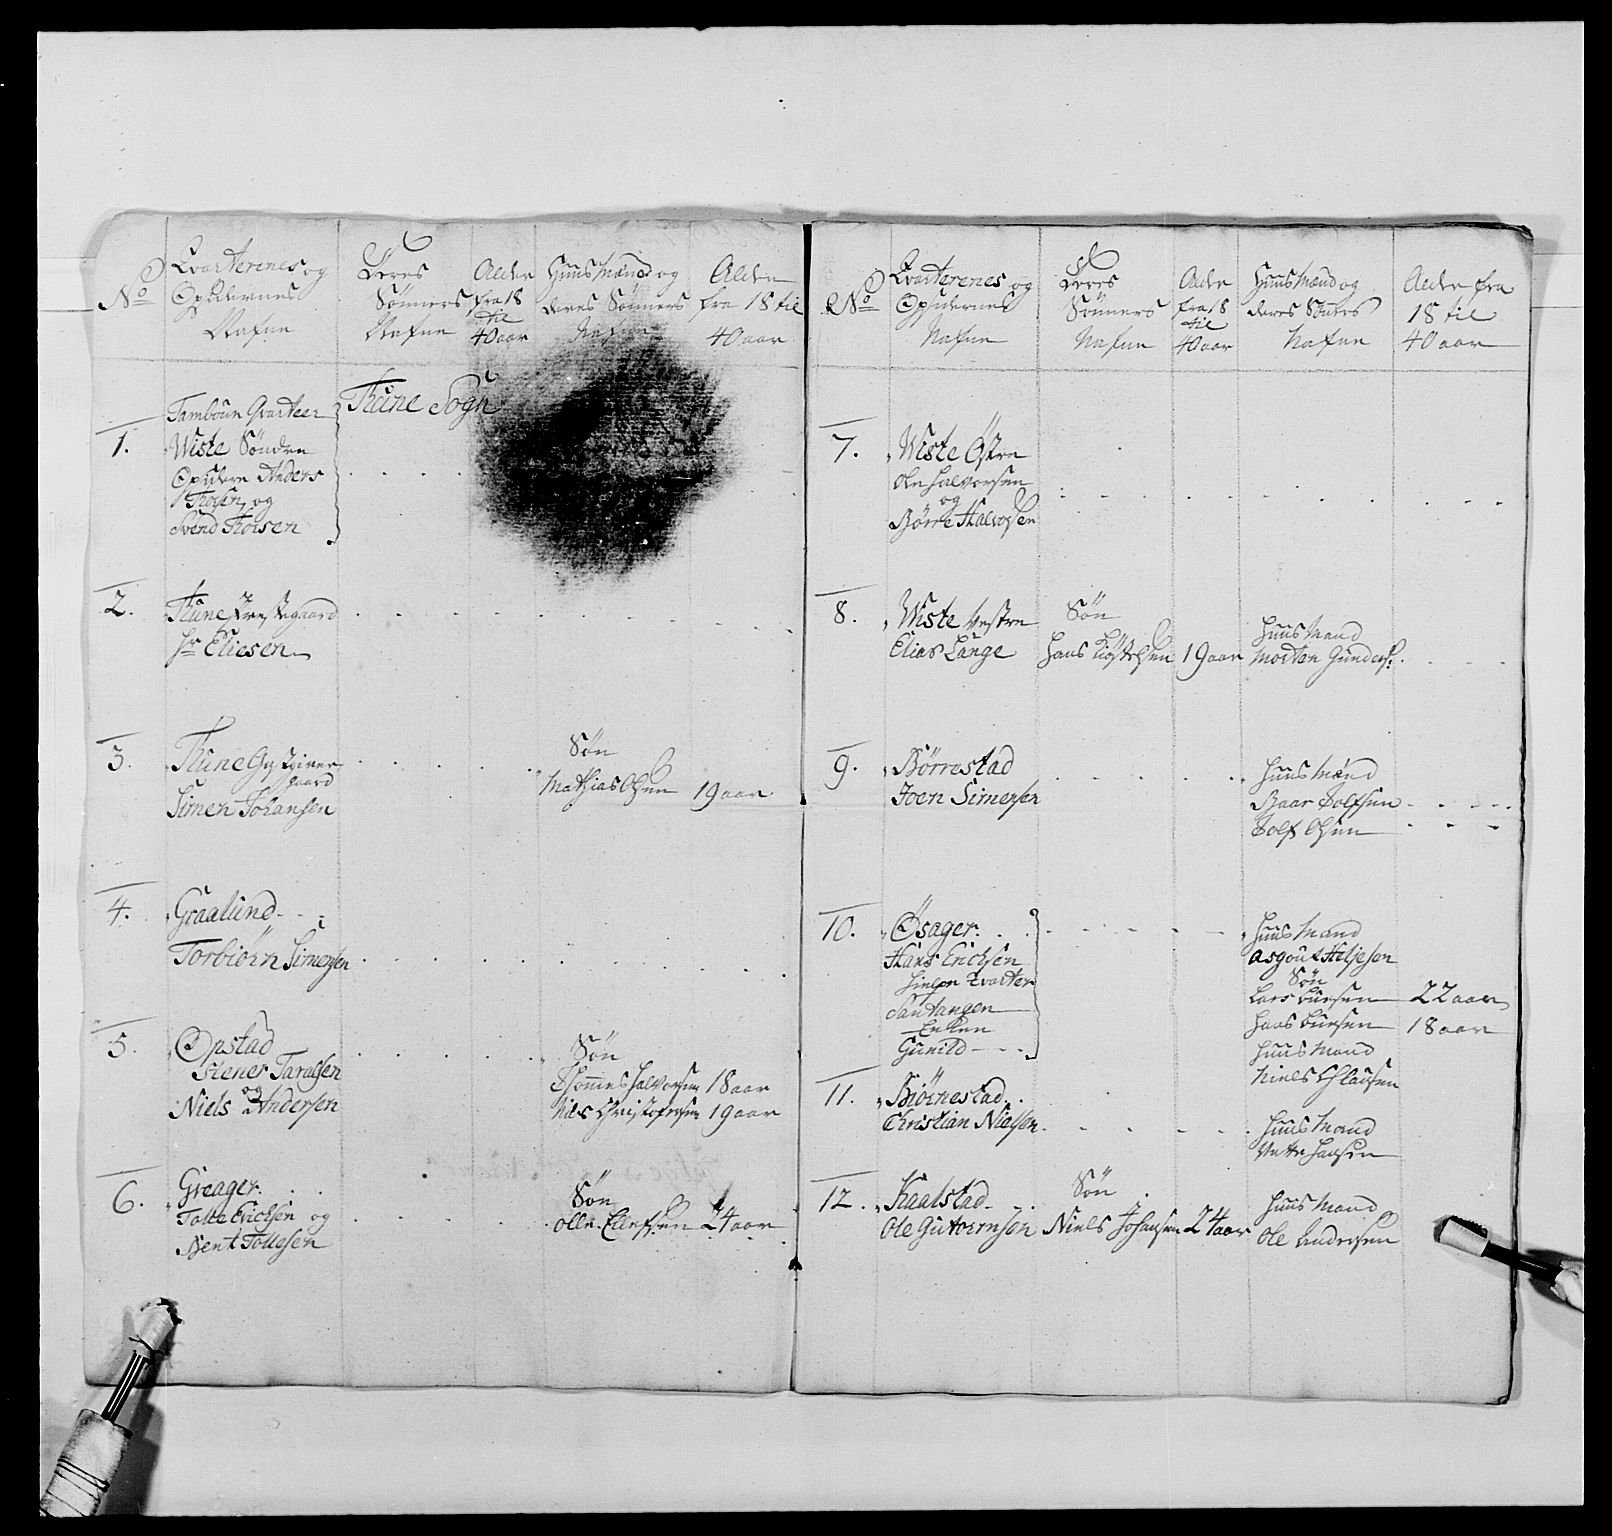 No
Qvarterenes og
Opsidernes
Nafne
Deres
Sønners
Nafne
Alder
fra 18
til
40 aar
Huusmænd og
deres Sønners
Nafne
Alder
fra 18 til
40 aar
Thune Sogn
1.
Tambour Qvarteer
Wiste Søndre
Opsidere Anders
Thoisen og
Svend Thoisen
2.
Thune Præstegaard
Hr Eliesen
3.
Thune Gystgiver
gaard
Simen Johansen
Søn
Mathias Olsen 19 aar
4.
Graalund
Torbiørn Simensen
5.
Opstad
Stener Taralsen
og
Niels Andersen
Søn
Thommes Halvorsen 18 aar
Niels Christophersen 19 aar
6.
Greager
Tolle Erichsen og
Bent Tollesen
Søn
Olle Ellefsen 24 aar
No
Qvarterenes og
Opsidernes
Nafne
Deres
Sønners
Nafne
Alder
fra 18
til
40 aar
Huusmænd og
deres Sønners
Nafne
Alder fra
18 til
40 aar
7.
Wiste Østre
Ole Halvorsen
og
Børre Halvorsen
8.
Wiste Vestre
Elias Lange
Søn
Hans Kiøstelsen 19 aar
Huusmand
Morten Gunders:
9.
Børrestad
Joen Simensen
Huusmænd
Baar Rolfsen
Rolf Olsen
10.
Øsager
Hans Erichsen
Hielpe Qvarter
Santangen
Enken
Gunild
Huusmand
Asgout Heljesen
Søn
Lars Buesen 22 aar
Hans Buesen 18 aar
Huusmand
Niels Clausen
11.
Biørnestad
Christian Nielsen
Huusmand
Hansen
12.
Kaalstad
Ole Guttormsen
Søn
Niels Johansen 24 aar
Huusmand
Ole Andersen